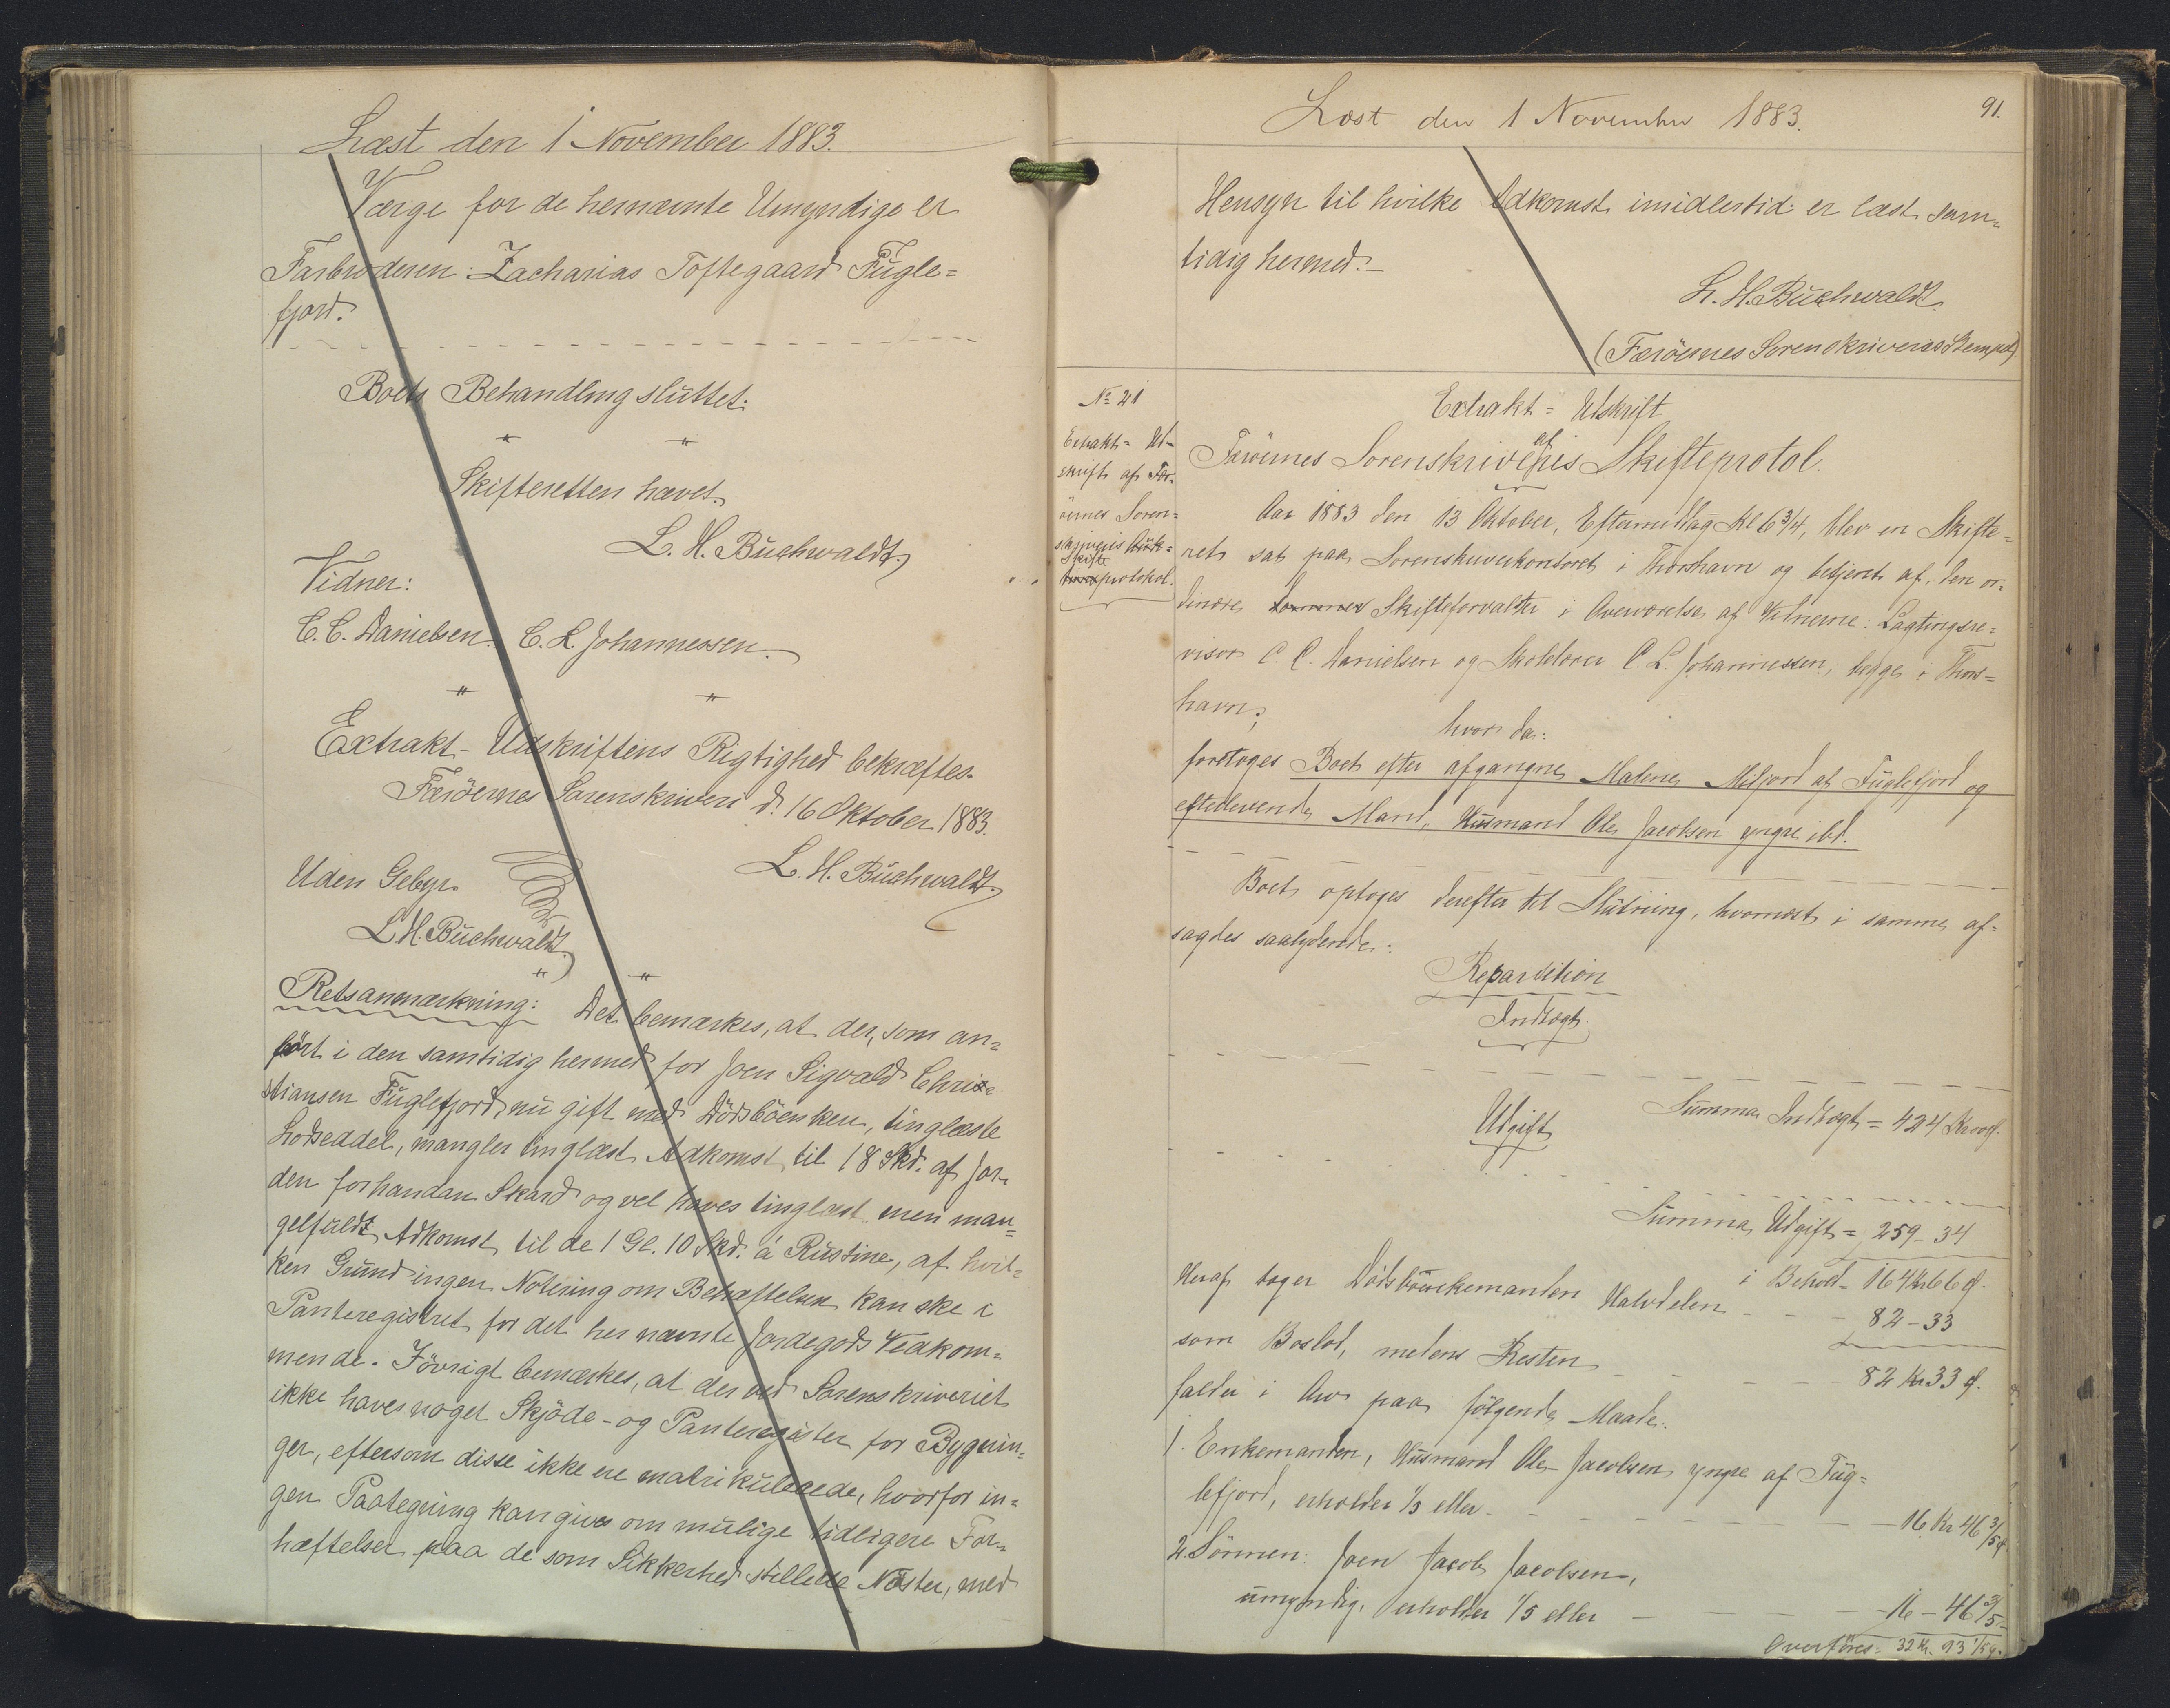 Læst den 1 November 1883.
Værge for de hernævnte Umyndige er
Farbroderen: Zacharias Toftegaard Fugle=
fjord.
Boets Behandling sluttet.
Skifteretten hævet.
L. H. Buchwaldt
Vidner:
C. C. Danielsen. C. L. Johannessen.
Extrakt-Udskriftens Rigtighed bekræftes.
Færöernes Sorenskriveri d. 16 Oktober 1883.
L. H. Buchwaldt
Uden Gebyr.
L H. Buchwaldt
Retsanmærkning: Det bemærkes, at der, som an=
fört i den samtidig hermed for Joen Sigvald Chri=
stiansen Fuglefjord, nu gift med Dödsboenken, tinglæste
Lodseddel, mangler tinglæst Adkomst til 18 Skd. af Jor=
den forhandan Skard og vel haves tinglæst men man=
gelfuldt Adkomst til de 1 Gl. 10 Skd. á Rustine, af hvil=
ken Grund ingen Notering om Behæftelsen kan ske i
Panteregistret for det her nævnte Jordegods Vedkom=
mende. Iövrigt bemærkes, at der ved Sorenskriveriet
ikke haves noget Skjöde- og Panteregister for Bygnin=
ger, eftersom disse ikke ere matrikulerede, hvorfor in=
gen Paategning kan gives om mulige tidligere For=
hæftelser paa de som Sikkerhed stillede Nöster, med
91.
Læst den 1 November 1883.
Hensyn til hvilke Adkomst imidlertid er læst sam=
tidig hermed.-
L. H. Buchwaldt
(Færöernes Sorenskriveries Stempel)
№ 21
Extrakt= Ud=
skrift af Fær=
öernes Soren=
skriveris Auk=
Skifte
tions protokol.
Extrakt= Udskrift
af
Færöernes Sorenskriveris Skifteprotol.
Aar 1883 den 13 Oktober, Eftermiddag Kl 6 3/4, blev en Skifte=
ret sat paa Sorenskriverkontoret i Thorshavn og betjent af den or=
dinære Dommer Skifteforvalter i Overværelse af Vidnerne: Lagtingsre=
visor C. C. Danielsen og Skolelærer C. L. Johannessen, begge i Thors=
havn;
hvor da:
foretoges Boet efter afgangne Malene Mifjord af Fuglefjord og
efterlevende Mand, Husmand Ole Jacobsen yngre ibd.
Boet optoges derefter til Slutning, hvornæst i samme af=
sagdes saalydende:
Repartition
Indtægt.
Summa Indtægt = 424 Kr. 00 Ø.
Udgift
Summa Udgift = 259 - 34
i Behold - 164 Kr 66 Ø.
Heraf tager Dödsboenkemanden Halvdelen - - - 82 - 33
som Boslod, medens Resten - - - - 82 Kr 33 Ø.
falder i Arv paa fölgende Maade:
1. Enkemanden, Husmand Ole Jacobsen yngre af Fug=
lefjord, erholder 1/5 eller - - - - 16 Kr 46 3/5 Ø
2. Sönnen: Joen Jacob Jacobsen,
umyndig, erholder 1/5 eller - - - - 16 - 46 3/5 -
Overföres = 32 Kr. 93 1/5 Ø.